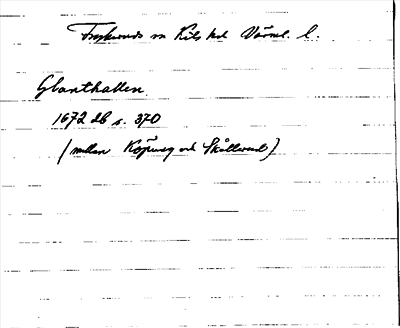 Frykerud sn Kils hd Värml. l.
Glanthallen
1672 db s. 370
(mellan Köpung och Skållerud)